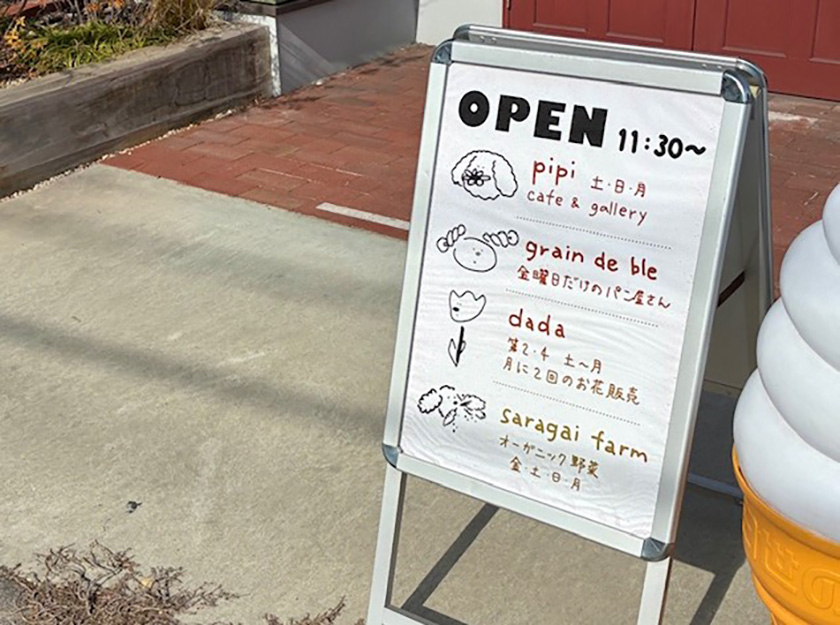 OPEN 11:30~
pipi 土・日・月
cafe & gallery
grain de ble
金曜日だけのパン屋さん
dada
第2・4 土〜月
月に2回のお花販売
saragai farm
オーガニック野菜
金・土・日・月